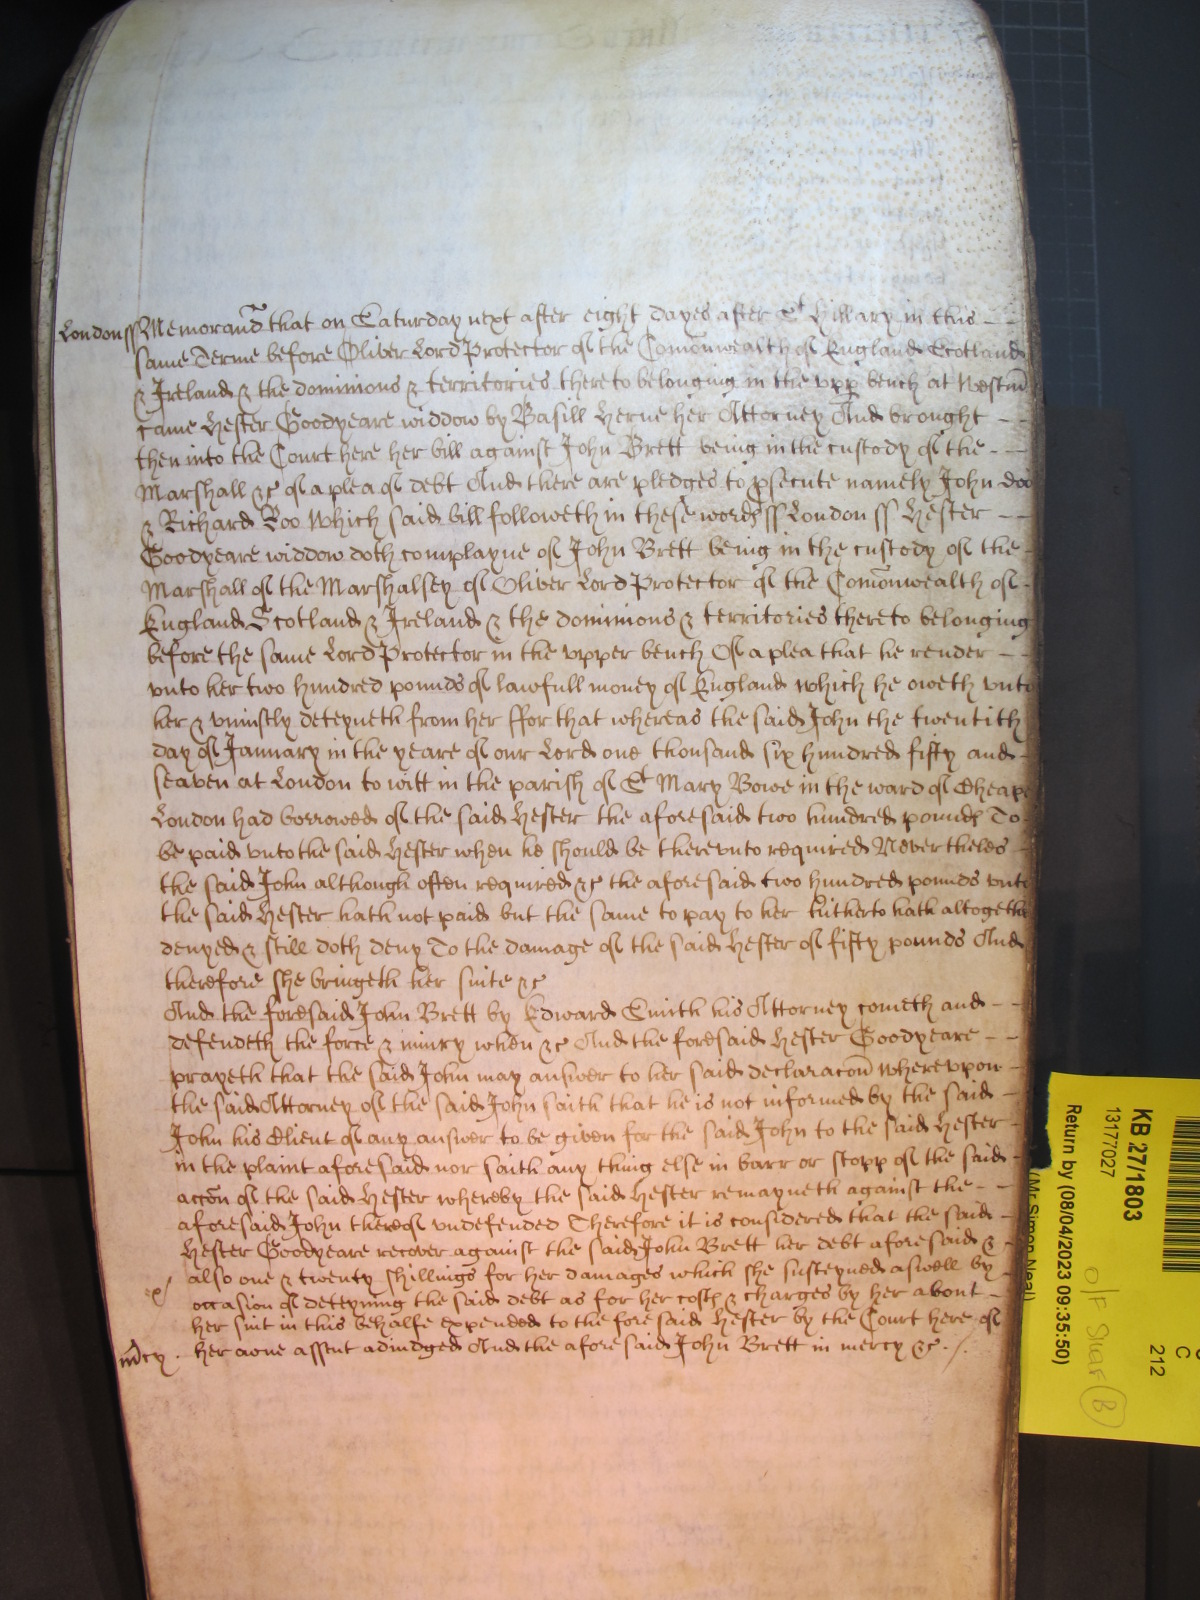 London ss Memorand that on Saturday next after eight dayes after St Hillary in this
same Terme before Oliver Lord Protector of the Comonwealth of England Scotland
& Ireland & the dominions & territories thereto belonging in the upp bench at Westm
came Hester Goodyeare widdow by Basill Herne her Attorney And brought
then into the Court here her bill against John Brett being in the custody of the
Marshall &c of a plea of debt And there are pledges to psecute namely John doo
& Richard Roo Which said bill followeth in these words ss London ss Hester
Goodyeare widdow doth complayne of John Brett being in the custody of the
Marshall of the Marshalsey of Oliver Lord Protector of the Comonwealth of
England Scotland & Ireland & the dominions & territories thereto belonging
before the same Lord Protector in the upper bench Of a plea that he render
unto her two hundred pounds of lawfull money of England which he oweth unto
her & uniustly deteyneth from her ffor that whereas the said John the twentith
day of January in the yeare of our Lord one thousand six hundred fifty and
seaven at London to witt in the parish of St Mary Bowe in the ward of Cheape
London had borrowed of the said Hester the aforesaid two hundred pounds To
be paid unto the said Hester when he should be thereunto required Nevertheles
the said John although often required &c the aforesaid two hundred pounds unto
the said Hester hath not paid but the same to pay to her hitherto hath altogether
denyed & still doth deny To the damage of the said Hester of fifty pounds And
therefore she bringeth her suite &c
And the foresaid John Brett by Edward Smith his Attorney cometh and
defendeth the force & iniury when &c And the foresaid Hester Goodyeare
prayeth that the said John may answer to her said declaracon Whereupon
the said Attorney of the said John saith that he is not informed by the said
John his Client of any answer to be given for the said John to the said Hester
in the plaint aforesaid nor saith any thing else in barr or stopp of the said
accon of the said Hester whereby the said Hester remayneth against the
aforesaid John thereof undefended Therefore it is considered that the said
Hester Goodyeare recover against the said John Brett her debt aforesaid &
also one & twenty shillings for her damages which she susteyned aswell by
occasion of deteyning the said debt as for her costs & charges by her about
her suit in this behalfe expended to the foresaid Hester by the Court here of
her owne assent adiudged And the aforesaid John Brett in mercy &c.
mcy.
KB 27/1803
13177027
Return by (08/04/2023 09:35:50)
(Mr Simon Neal)
O/F Shar B
C
212